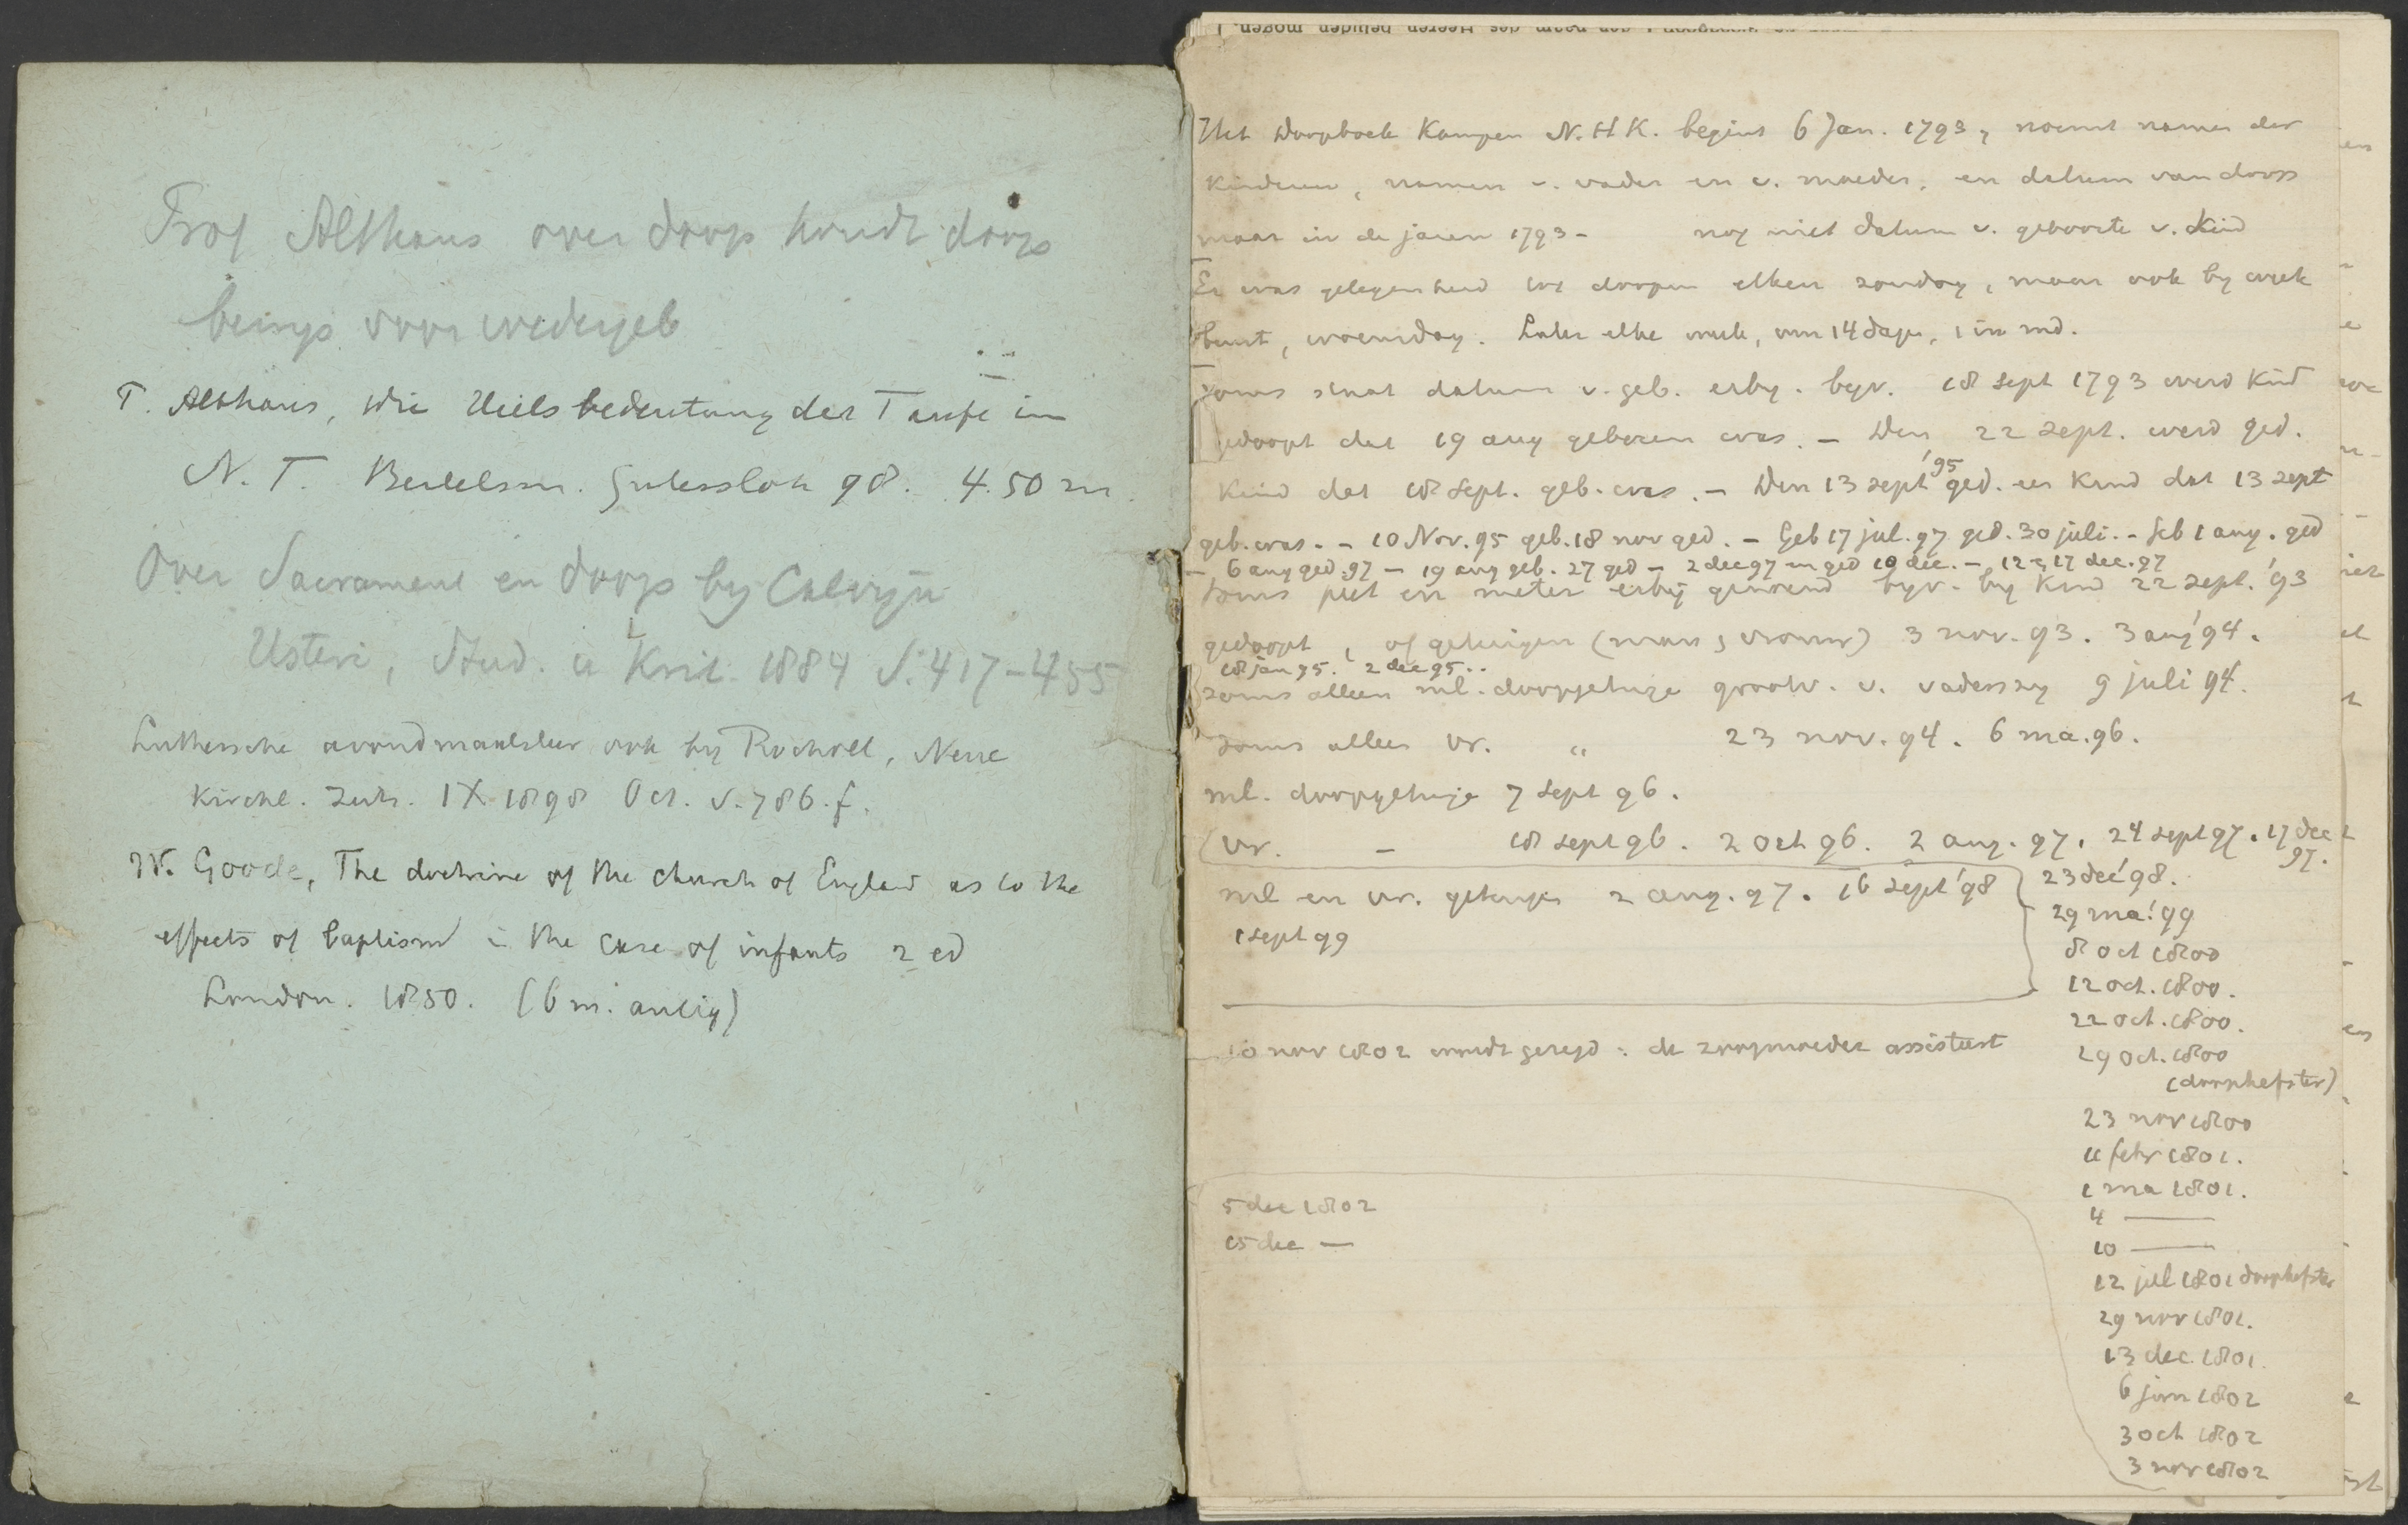 Prof Althaus over doop houdt doop
bewijs voor wedergeb
P. Althaus, Die Heilsbedeutung der Taufe im
N. T. Bertelsm. Gutersloh 98. 4.50 m.
Over Sacrament en doop by Calvijn
Usteri, Stud. u Krit. 1884 S. 417-455
Luthersche avondmaalsleer ook by Rocholl, Neue
Kirchl. Zeits. IX 1898 Oct. S. 786. f.
W. Goode, The doctrine of the church of England as to the
effects of baptism in the case of infants 2 ed
London. 1850. (6 m. antiq)
Het Doopboek Kampen N.H.K. begint 6 Jan. 1793, noemt namen der
kinderen, namen v. vader en v. moeder, en datum van doop
maar in de jaren 1793 - nog niet datum v. geboorte v. kind
Er was gelegenheid tot doopen elken zondag, maar ook by week
beurt, woensdag. Later elke week, om 14 dage, 1 in md.
Soms staat datum v. geb. erby. byv. 18 sept 1793 werd kind
gedoopt dat 19 aug geboren was. - Den 22 sept. werd ged.
kind dat 18 sept. geb. was. - Den 13 sept '95 ged. een kind dat 13 sept
geb. was. - 10 Nov. 95 geb. 18 nov ged. - Geb 17 jul. 97 ged. 30 juli. - Geb 1 aug. ged
- 6 aug ged. 97 - 19 aug geb. 27 ged - 2 dec 97 en ged 10 dec. - 12 17 dec. 97
soms peet en meter erbij genoemd byv. by kind 22 sept. '93
gedoopt, of getuigen (man, vrouw) 3 nov. 93. 3 aug '94.
18 jan 95. 2 dec 95..
soms alleen ml. doopgetuige grootv. v. vaderszy 9 juli 94.
soms alleen vr. " 23 nov. 94. 6 ma. 96.
ml. doopgetuige 7 sept 96.
(vr. - 18 sept 96. 2 oct 96. 2 aug. 97. 24 sept 97. 17 dec
97.
ml en vr. getuigen 2 aug. 97. 16 sept '98
1 sept 99
23 dec '98.
29 ma. '99
8 oct 1800
12 oct. 1800.
22 oct. 1800.
29 oct. 1800
(doophefster)
23 nov 1800
11 febr 1801.
1 ma 1801.
4 —
10 —
12 jul 1801 doophefster
29 nov 1801.
13 dec. 1801.
6 jun 1802
3 oct 1802
3 nov 1802
10 nov 1802 wordt gezegd: de zoogmoeder assisteert
5 dec 1802
15 dec —